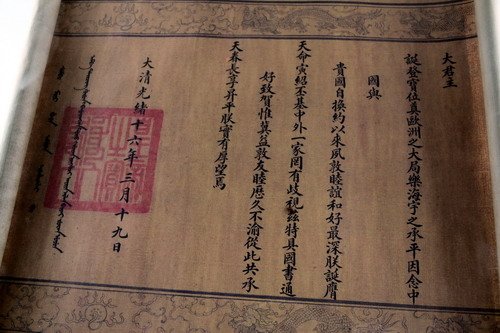 大君主
誕登寶位直歐洲之大局樂海宇之承平因念中
國與
貴國自換約以來夙敦睦誼和好最深朕誕膺
天命寅紹丕基中外一家罔有歧視茲特具國書通
好致賀惟冀益敦友睦歷久不渝從此共承
天眷長享升平朕實有厚望焉
大清光緒十六年三月十九日